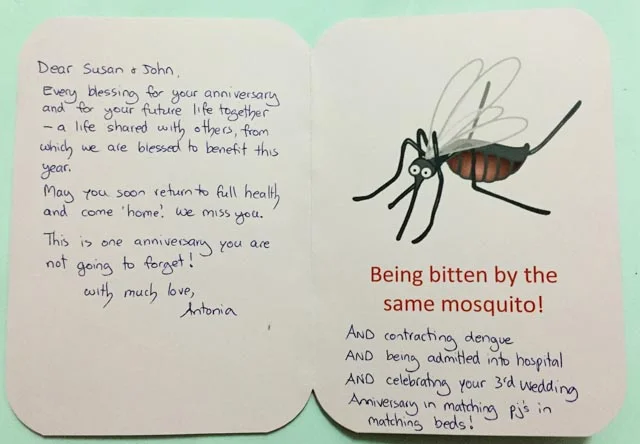 Dear Susan & John,
Every blessing for your anniversary
and for your future life together
– a life shared with others, from
which we are blessed to benefit this
year.
May you soon return to full health
and come 'home'. We miss you.
This is one anniversary you are
not going to forget!
with much love,
Antonia
Being bitten by the
same mosquito!
AND contracting dengue
AND being admitted into hospital
AND celebrating your 3rd Wedding
Anniversary in matching pj's in
matching beds!